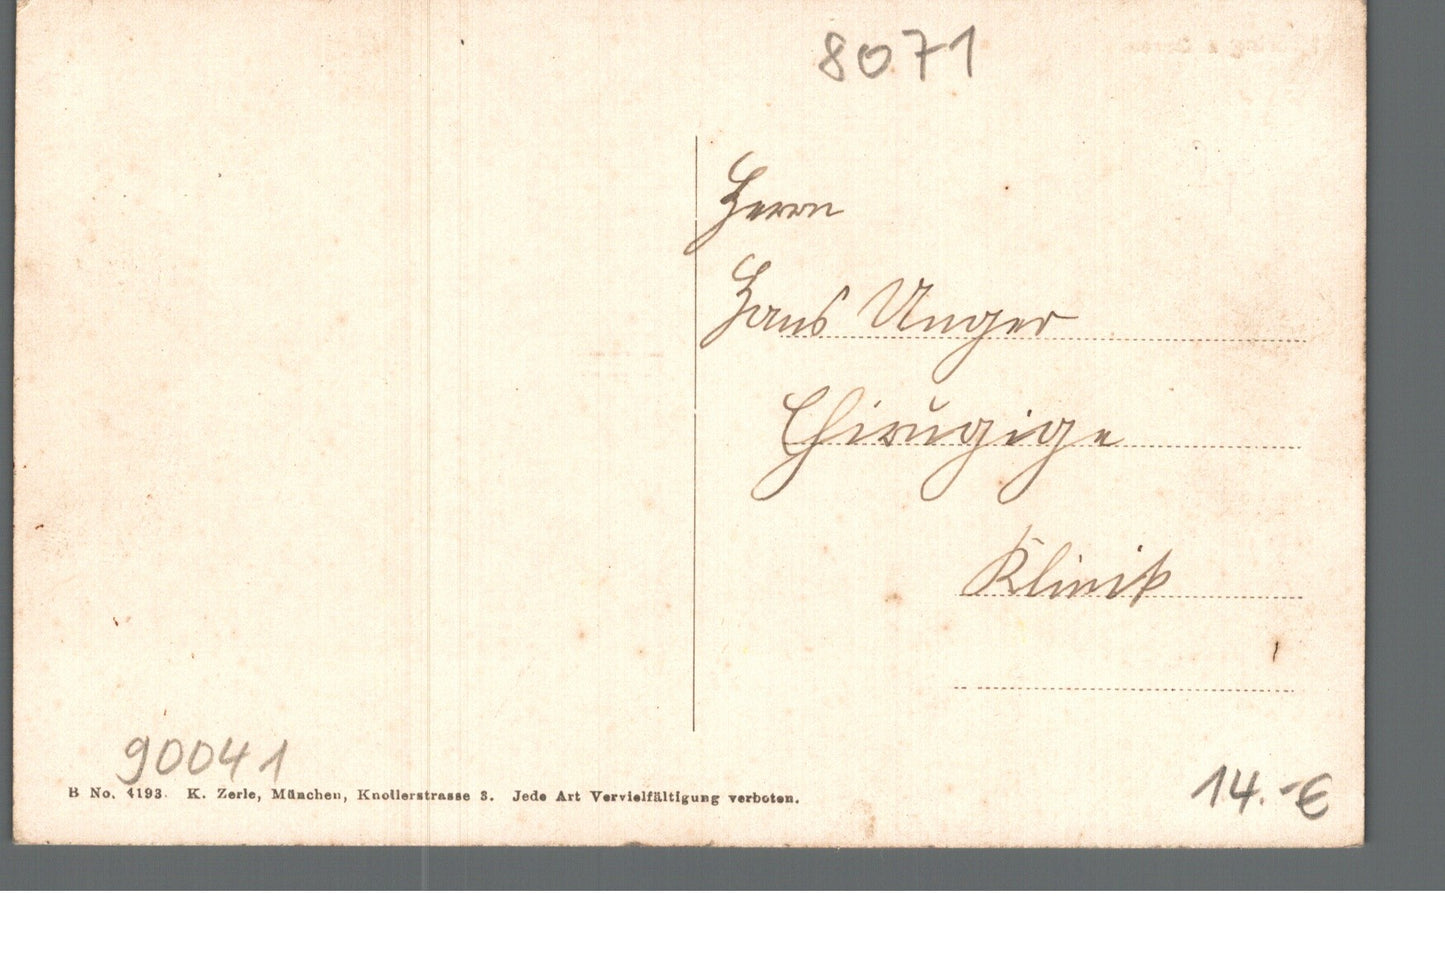 8071
Herrn
Hans Unger
Chirugige
Klinik
90041
B No. 4193. K. Zerle, München, Knollerstrasse 3. Jede Art Vervielfältigung verboten.
14.-€